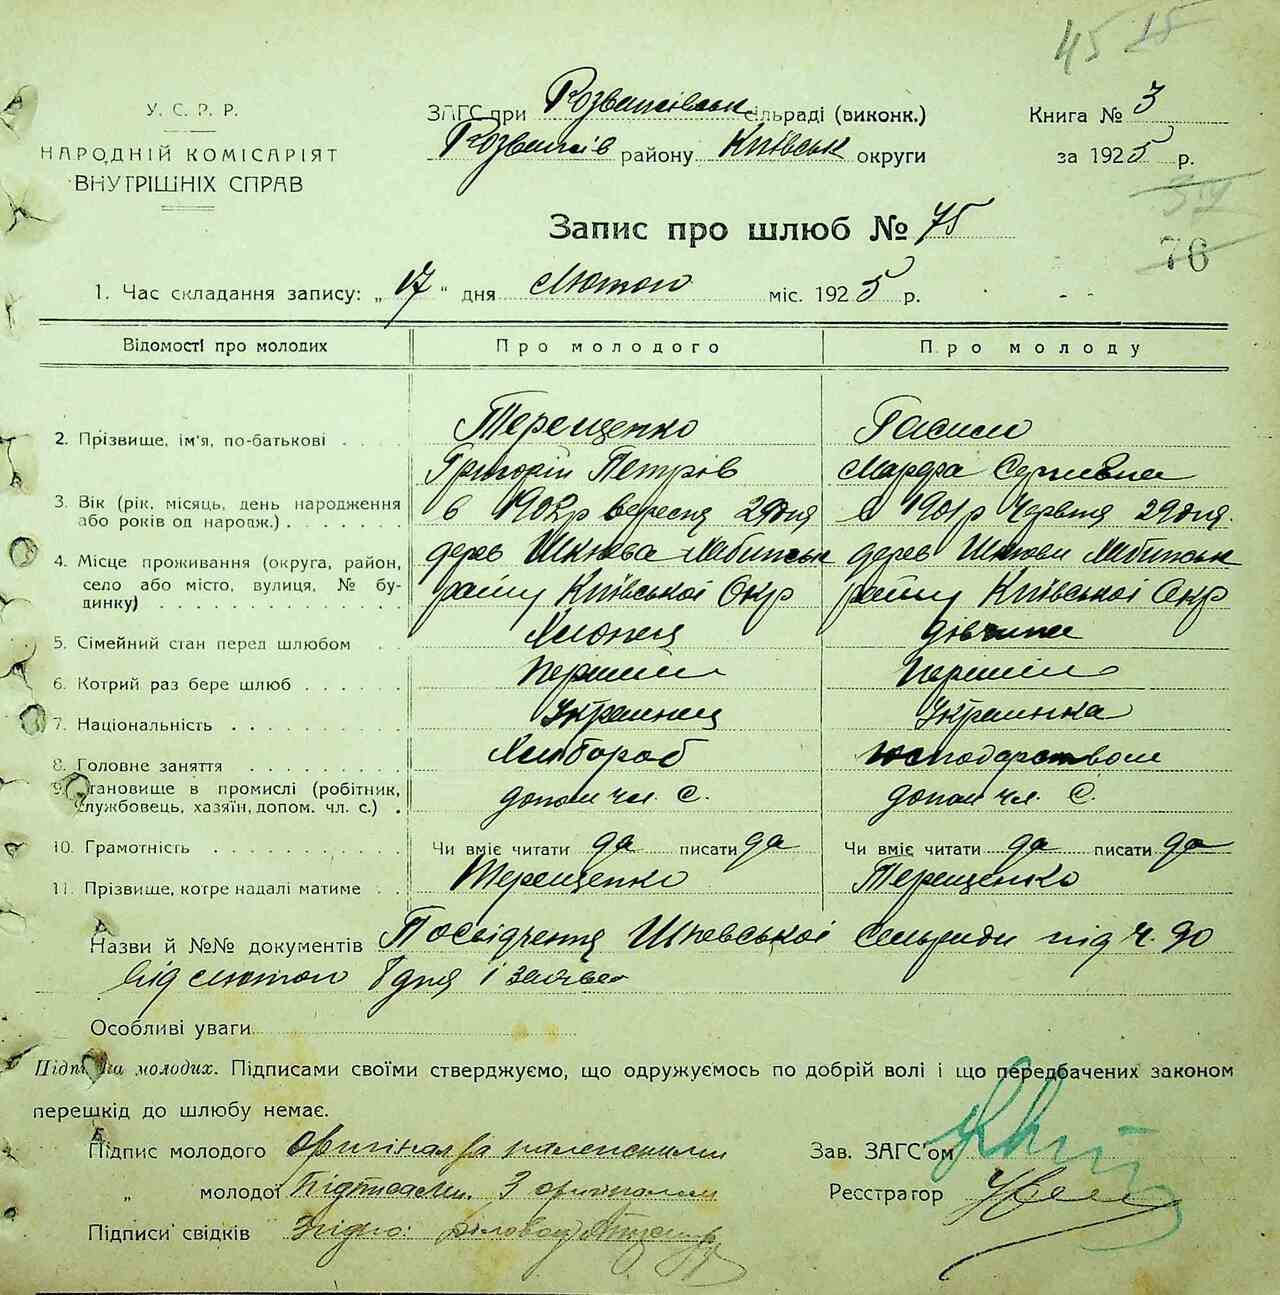 45 18
У. С. Р. Р.
НАРОДНІЙ КОМІСАРІЯТ
ВНУТРІШНІХ СПРАВ
ЗАГС при Розважівськ сільраді (виконк.)
Розважів району Київськ округи
Книга № 3
за 1925 р.
Запис про шлюб № 75
76
1. Час складання запису: „17" дня Лютого міс. 1925 р.
Відомості про молодих Про молодого Про молоду
2. Прізвище, ім'я, по-батькові Терещенко
Григорій Петрів Марфа
3. Вік (рік, місяць, день народження
або років од народж.) в 1902р вересня 29дня в 1901р Червня 29дня.
4. Місце проживання (округа, район,
село або місто, вулиця, № бу-
динку)
дерев Шкнева дерев Шкневи
району Київської Окр району Київської Окр
5. Сімейний стан перед шлюбом Хлопец дівчина
6. Котрий раз бере шлюб первий первий
7. Національність Украинец Украинка
8. Головне заняття Хлібороб господарством
9. Становище в промислі (робітник,
службовець, хазяїн, допом. чл. с.) допом чл. С. допом чл. С.
10. Грамотність Чи вміє читати да писати да Чи вміє читати да писати да
11. Прізвище, котре надалі матиме Терещенко Терещенко
Назви й №№ документів Посвідчення Шкневської Сельради під ч. 90
від лютого 8 дня і заява
Особливі уваги
Підписка молодих. Підписами своїми стверджуємо, що одружуємось по добрій волі і що передбачених законом
перешкід до шлюбу немає.
Підпис молодого Оригінал за належними
„ молодої Підписами. З оригіналом
Підписи свідків Згідно: Діловод
Зав. ЗАГС'ом
Реєстратор